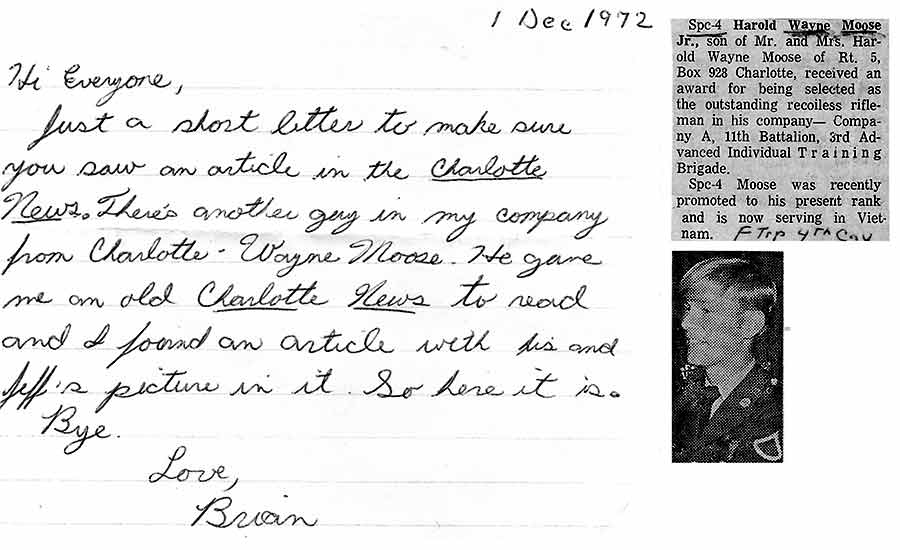 1 Dec 1972
Hi Everyone,
Just a short letter to make sure
you saw an article in the Charlotte
News. There's another guy in my company
from Charlotte - Wayne Moose. He gave
me an old Charlotte News to read
and I found an article with his and
Jeff's picture in it. So here it is.
Bye.
Love,
Brian
Spc-4 Harold Wayne Moose
Jr., son of Mr. and Mrs. Har-
old Wayne Moose of Rt. 5,
Box 928 Charlotte, received an
award for being selected as
the outstanding recoiless rifle-
man in his company— Compa-
ny A, 11th Battalion, 3rd Ad-
vanced Individual Training
Brigade.
Spc-4 Moose was recently
promoted to his present rank
and is now serving in Viet-
nam. F Trp 4th Cav